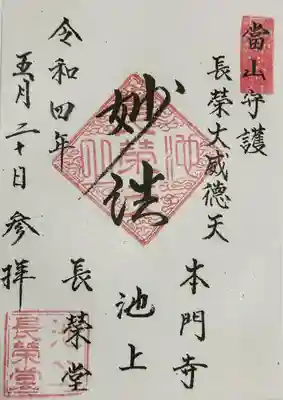 當山守護
長榮大威德天
本門寺
妙法
池上
長榮堂
令和四年
五月二十日参拝
長榮堂